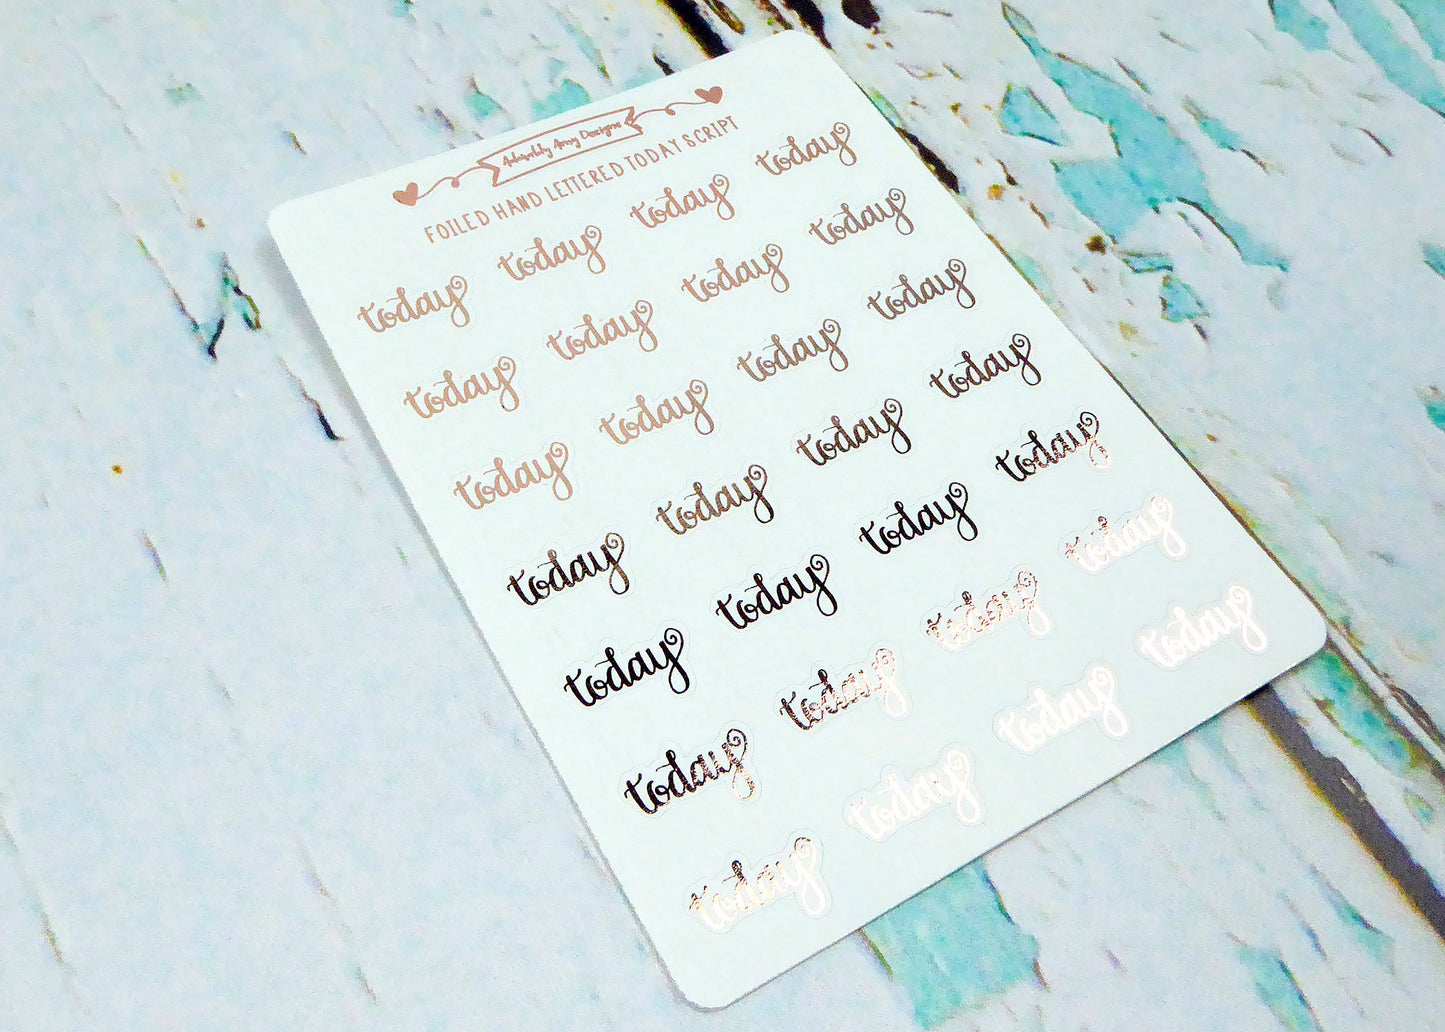 Adorably Amy Designs
FOILED HAND LETTERED TODAY SCRIPT
today today today today
today today today today
today today today today
today today today today
today today today today
today today today today
today today today today